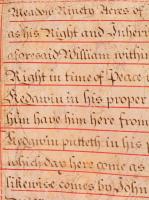 Meadow Ninety Acres of
as his Right and Inheri
aforesaid William within
Right in time of Peace i
Redawin in his proper
him have him here from
Redawin putteth in his p
which day here come as
likewise comes by John